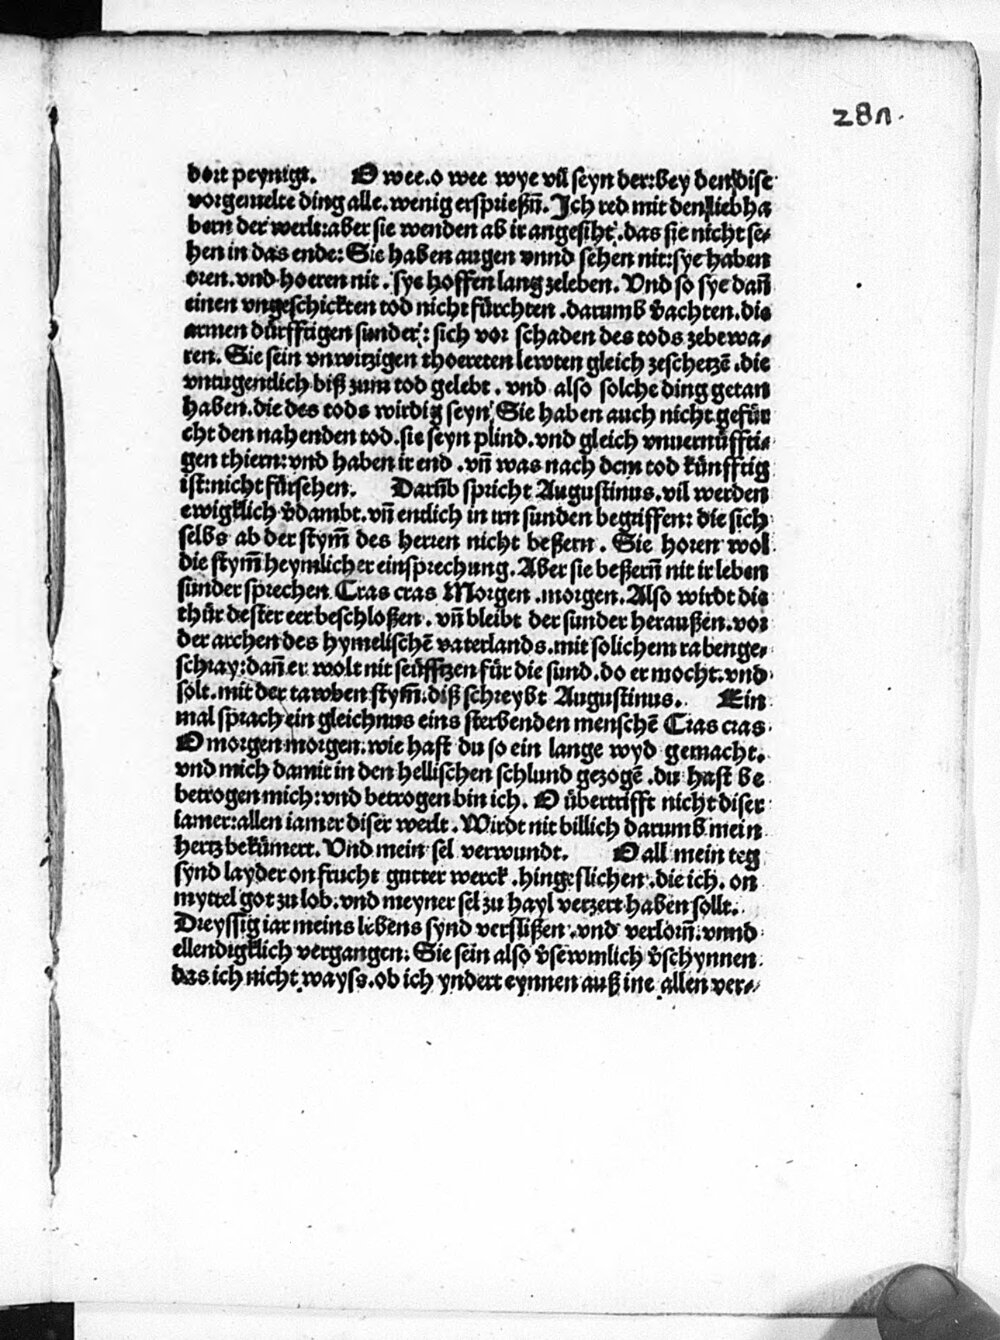 281.
dort peynigt. O wee.o wee wye vil seyn der:bey den dise
vorgemelte ding alle.wenig ersprießn̄. Ich red mit den liebha
bern der werlt:aber sie wenden ab ir angesiht.das sie nicht se⸗
hen in das ende: Sie haben augen vnnd sehen nit:sye haben
oren.vnd hoeren nit. sye hoffen lang zeleben. Vnd so sye dañ
einen vngeschickten tod nicht fürchten.darumb v̄achten.die
armen dürfftigen sunder: sich vor schaden des tods zebewa⸗
ren. Sie sein vnwitzigen thoereten lewten gleich zeschetzē.die
vntugentlich biß zum tod gelebt. vnd also solche ding getan
haben.die des tods wirdig seyn. Sie haben auch nicht gefür
cht den nahenden tod.sie seyn plind.vnd gleich vnuernüffti⸗
gen thiern:vnd haben ir end.vñ was nach dem tod künfftig
ist:nicht fürsehen. Darūb spricht Augustinus.vil werden
ewigklich v̄dambt.vñ entlich in irn sunden begriffen: die sich
selbs ab der stym̄ des herren nicht beßern. Sie horen wol
die stym̄ heymlicher einsprechung. Aber sie beßern̄ nit ir leben
sunder sprechen. Cras cras Morgen.morgen. Also wirdt die
thür dester eer beschloßen. vñ bleibt der sunder heraußen.vor
der archen des hymelischē vaterlands.mit solichem rabenge⸗
schray:dañ er wolt nit seüfftzen für die sund.do er mocht.vnd
solt.mit der tawben stym̄.diß schreybt Augustinus. Ein
mal sprach ein gleichnus eins sterbenden menschē Cras cras
O morgen morgen.wie hast du so ein lange wyd gemacht.
vnd mich damit in den hellischen schlund gezogē.du hast be
betrogen mich:vnd betrogen bin ich. O übertrifft nicht diser
iamer:allen iamer diser werlt. Wirdt nit billich darumb mein
hertz bekümert. Vnd mein sel verwundt. O all mein teg
synd layder on frucht gutter werck.hingeslichen.die ich. on
myttel got zu lob.vnd meyner sel zu hayl verzert haben sollt.
Dreyssig iar meins lebens synd verslißen.vnd verlorn̄.vnnd
ellendigklich vergangen: Sie sein also v̄sewmlich v̄schynnen
das ich nicht wayss.ob ich yndert eynnen auß ine allen ver⸗